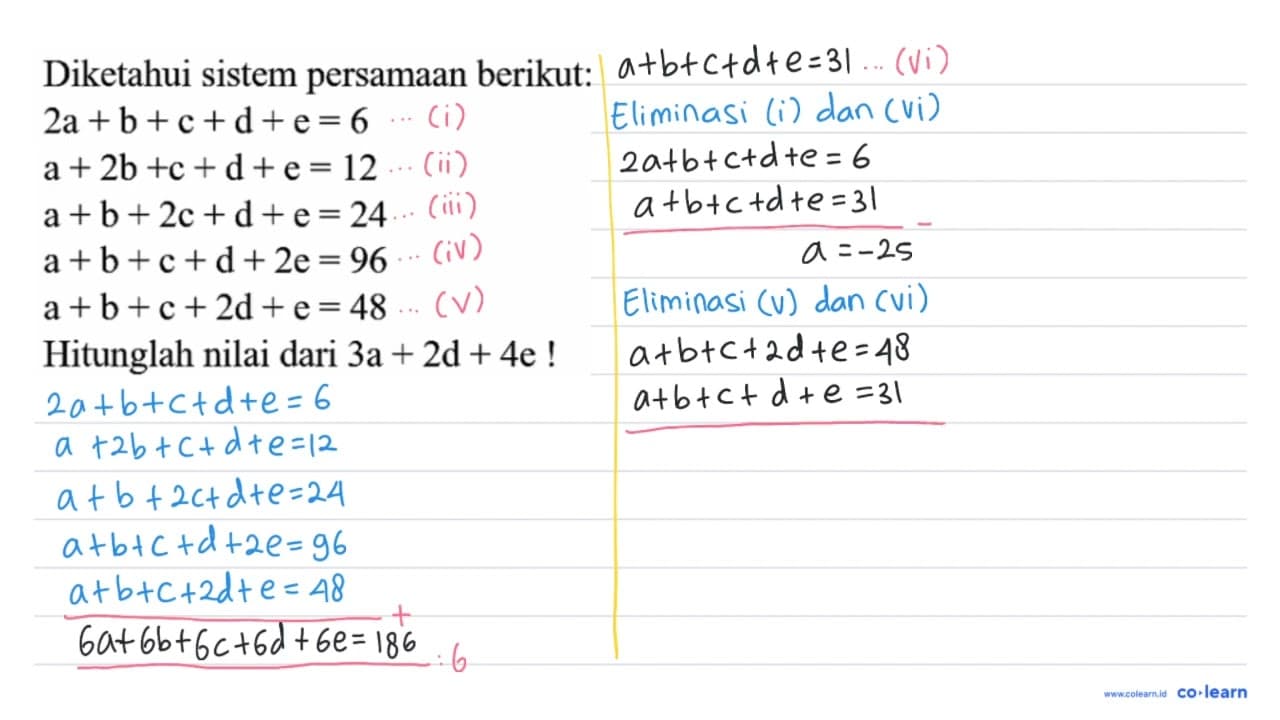 Diketahui sistem persamaan berikut:
2a + b + c + d + e = 6 ... (i)
a + 2b +c + d + e = 12 ... (ii)
a + b + 2c + d + e = 24 ... (iii)
a + b + c + d + 2e = 96 ... (iv)
a + b + c + 2d + e = 48 ... (v)
Hitunglah nilai dari 3a + 2d + 4e !
2a+b+c+d+e=6
a+2b+c+d+e=12
a+b+2c+d+e=24
a+b+c+d+2e=96
a+b+c+2d+e=48
+
6a+6b+6c+6d+6e=186
:6
a+b+c+d+e=31 ... (vi)
Eliminasi (i) dan (vi)
2a+b+c+d+e=6
a+b+c+d+e=31
-
a=-25
Eliminasi (v) dan (vi)
a+b+c+2d+e=48
a+b+c+d+e=31
www.colearn.id co·learn